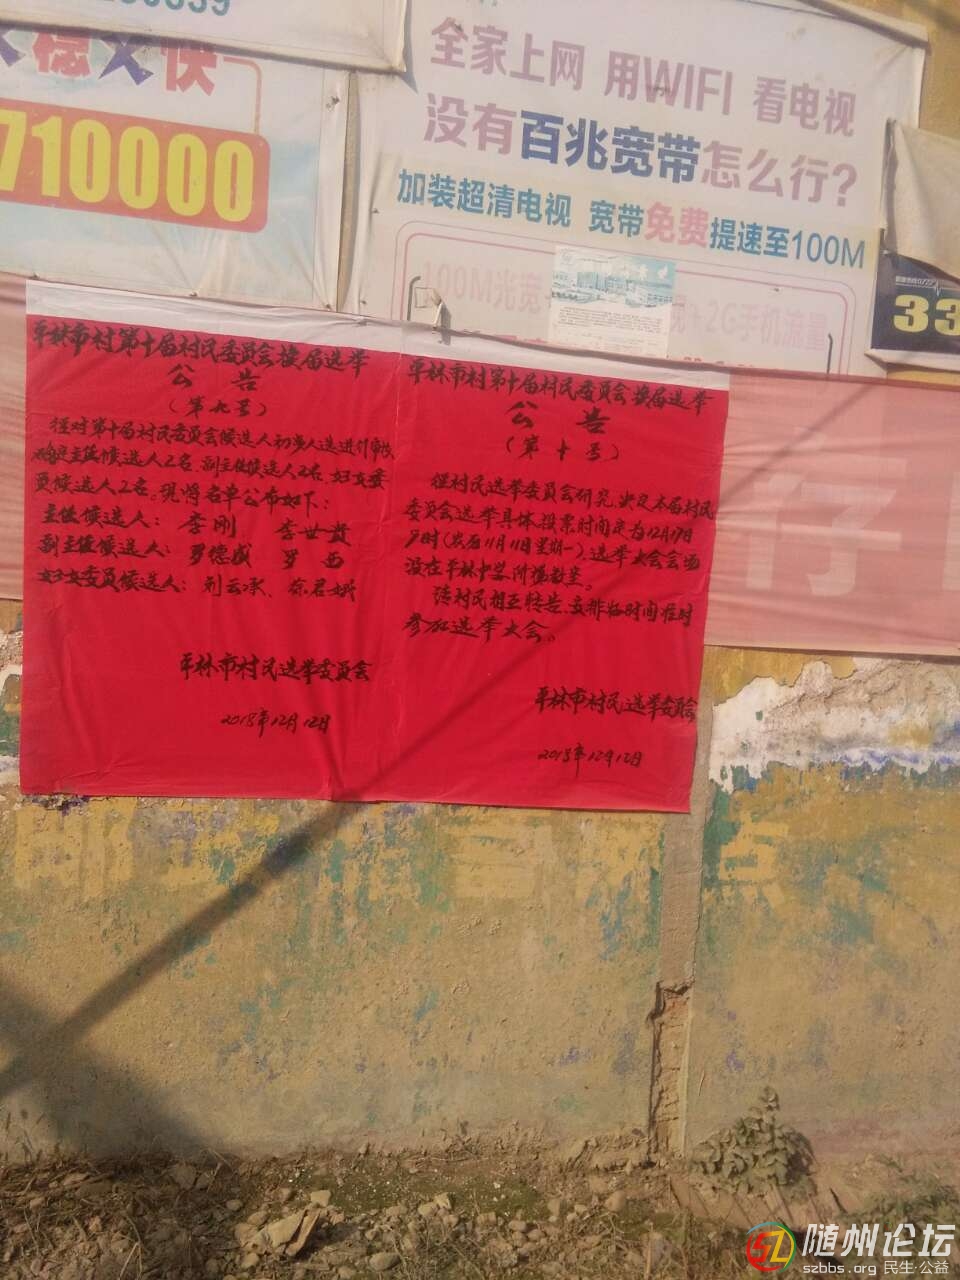 又稳又快
710000
全家上网 用WIFI 看电视
没有百兆宽带怎么行?
加装超清电视 宽带免费提速至100M
100M光宽
+2G手机流量
33
平林市村第十届村民委员会换届选举
公告
(第九号)
经对第十届村民委员会候选人初步人选进行审核
确定主任候选人2名、副主任候选人2名、妇女委
员候选人2名。现将名单公布如下:
主任候选人: 李刚 李世贵
副主任候选人: 罗德成 罗西
妇女委员候选人: 刘云承、徐君娥
平林市村民选举委员会
2018年12月12日
平林市村第十届村民委员会换届选举
公告
(第十号)
经村民选举委员会研究,决定本届村民
委员会选举具体投票时间定为12月17日
8时(农历11月11日星期一),选举大会会场
设在平林中学阶梯教室。
请村民相互转告,安排好时间准时
参加选举大会。
平林市村民选举委员会
2018年12月12日
存
点
随州论坛
szbbs.org 民生·公益